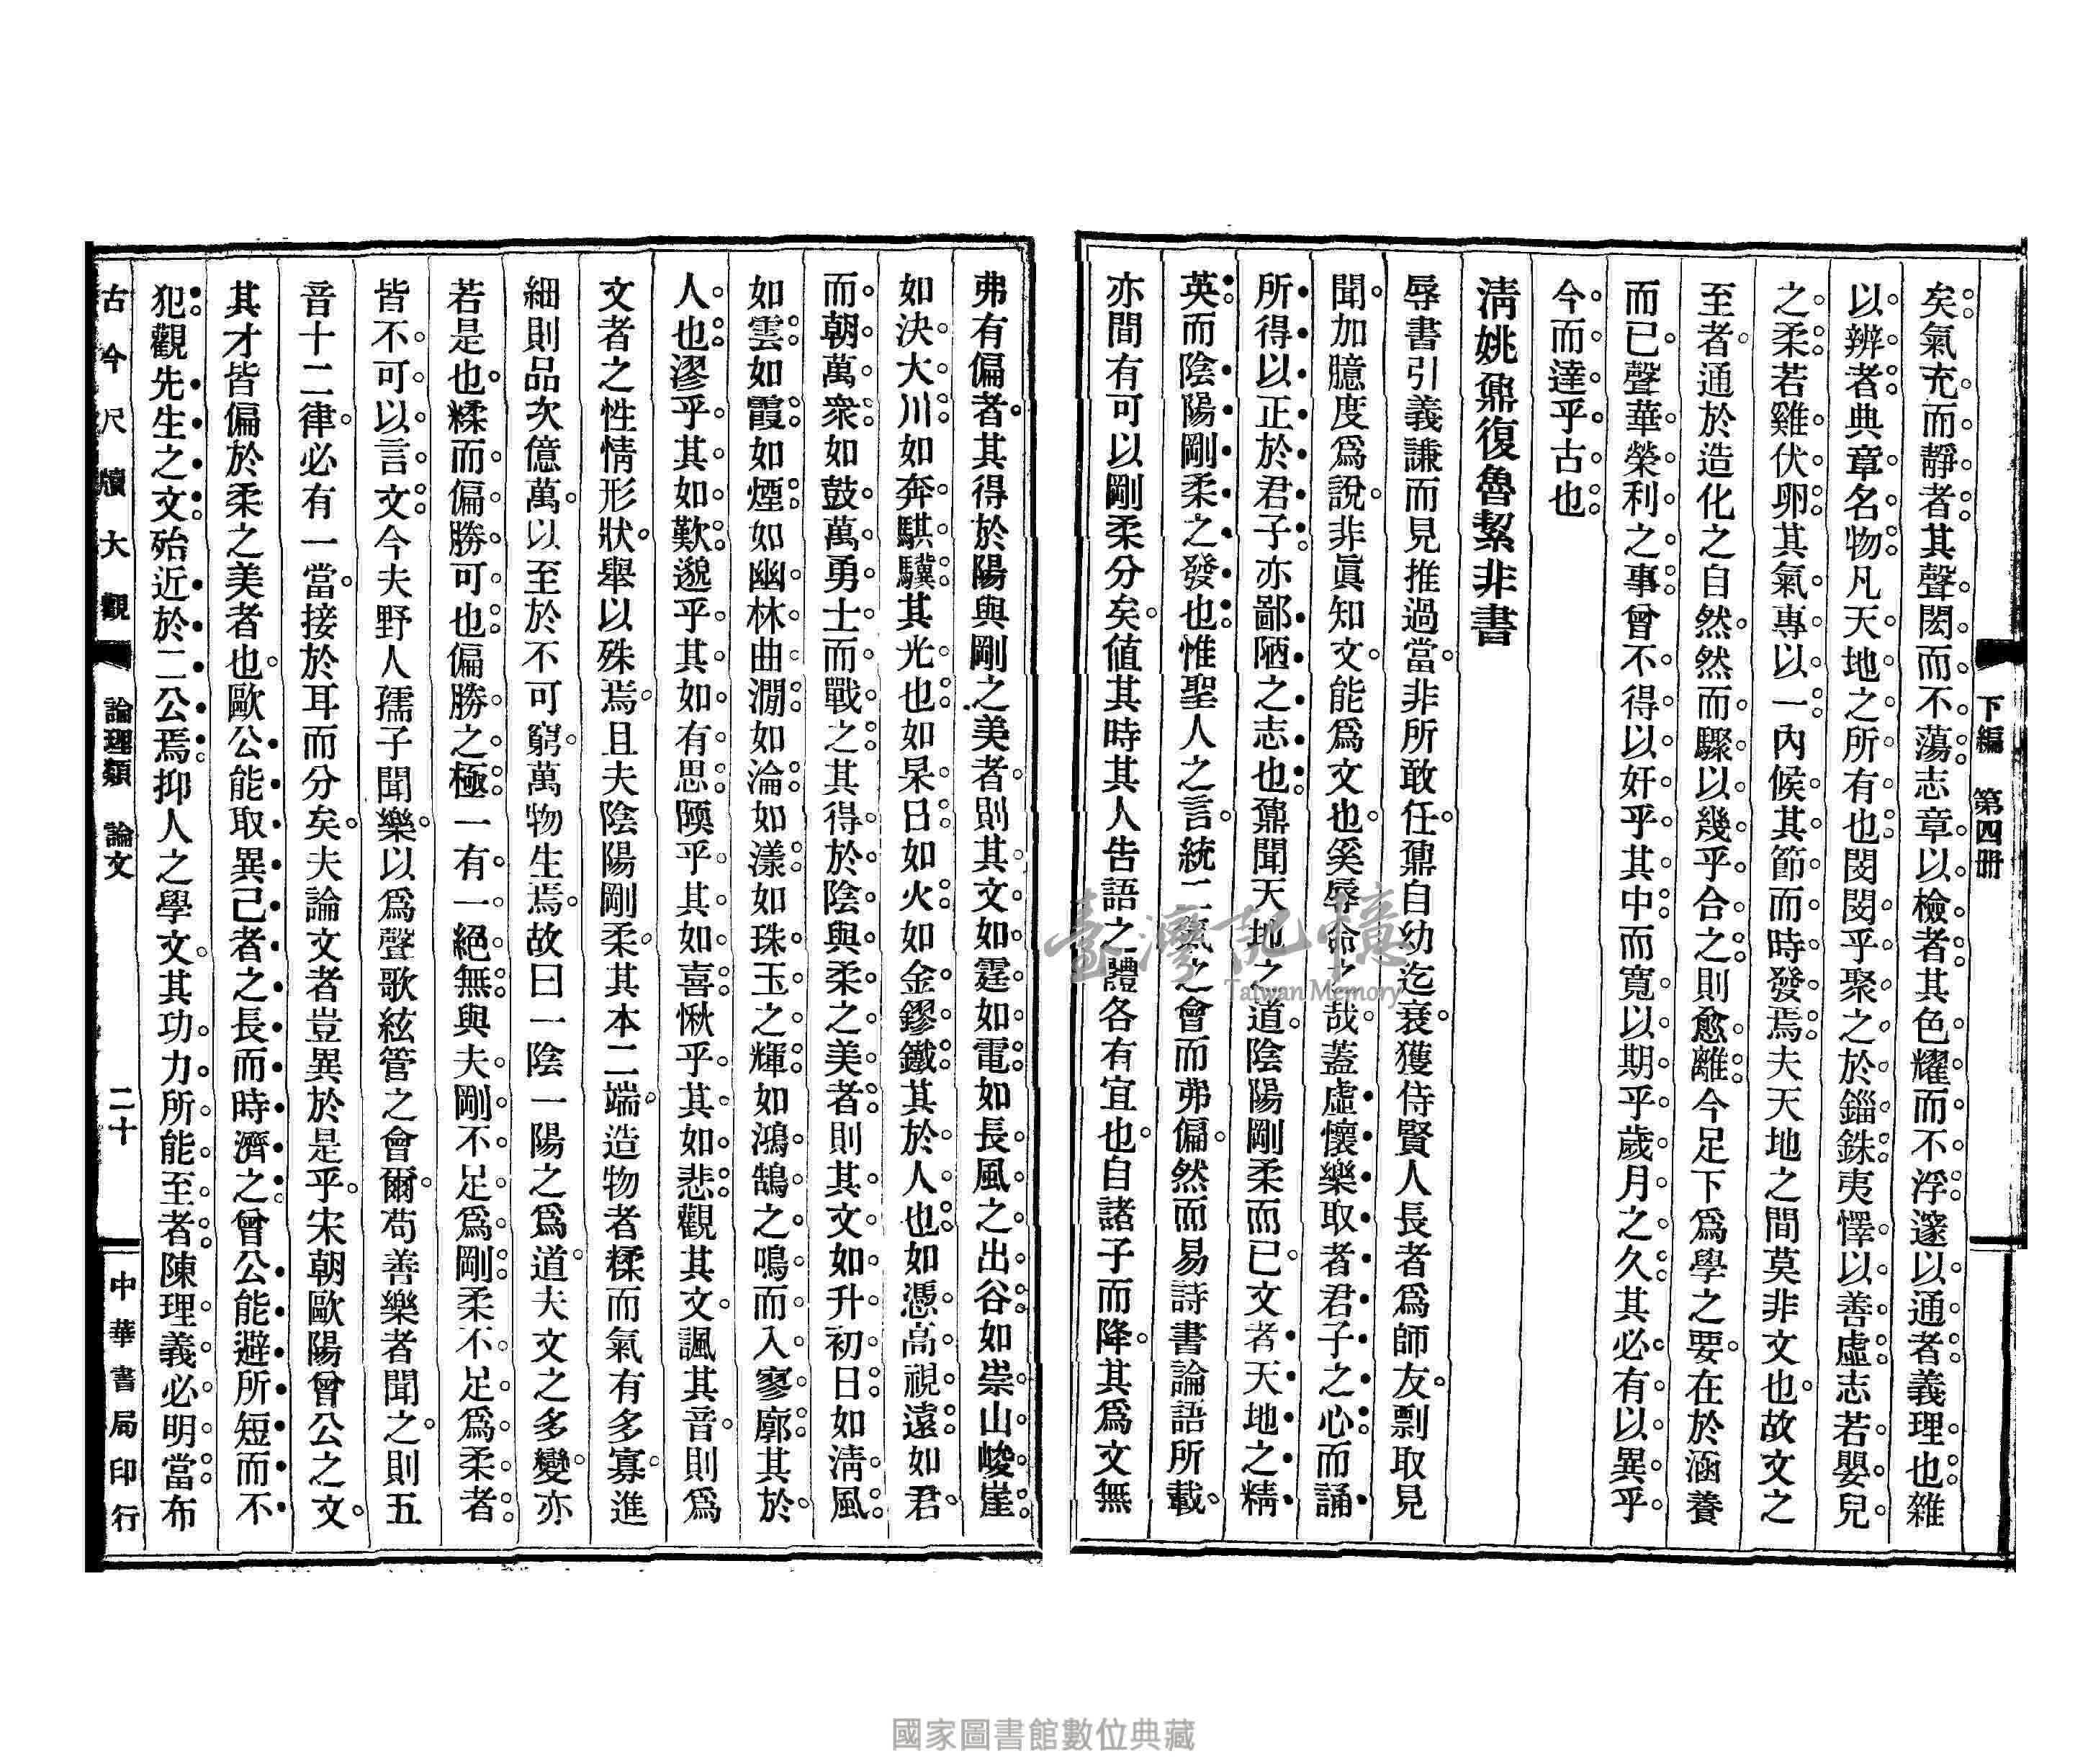 下編 第四冊
矣氣充而靜者其聲閎而不蕩志章以檢者其色耀而不浮邃以通者義理也雜
以辨者典章名物凡天地之所有也閔閔乎聚之於錙銖夷懌以善虛志若嬰兒
之柔若雞伏卵其氣專以一內候其節而時發焉夫天地之間莫非文也故文之
至者通於造化之自然然而驟以幾乎合之則愈離今足下爲學之要在於涵養
而已聲華榮利之事曾不得以奸乎其中而寬以期乎歲月之久其必有以異乎
今而達乎古也
清姚鼐復魯絜非書
辱書引義謙而見推過當非所敢任鼐自幼迄衰獲侍賢人長者爲師友剽取見
聞加臆度爲說非眞知文能爲文也奚辱命之哉蓋虛懷樂取者君子之心而誦
所得以正於君子亦鄙陋之志也鼐聞天地之道陰陽剛柔而已文者天地之精
英而陰陽剛柔之發也惟聖人之言統二氣之會而弗偏然而易詩書論語所載
亦間有可以剛柔分矣値其時其人告語之體各有宜也自諸子而降其爲文無
弗有偏者其得於陽與剛之美者則其文如霆如電如長風之出谷如崇山峻崖
如決大川如奔騏驥其光也如杲日如火如金鏐鐵其於人也如憑高視遠如君
而朝萬衆如鼓萬勇士而戰之其得於陰與柔之美者則其文如升初日如淸風
如雲如霞如煙如幽林曲澗如淪如漾如珠玉之輝如鴻鵠之鳴而入寥廓其於
人也漻乎其如歎邈乎其如有思㬉乎其如喜愀乎其如悲觀其文諷其音則爲
文者之性情形狀舉以殊焉且夫陰陽剛柔其本二端造物者糅而氣有多寡進
細則品次億萬以至於不可窮萬物生焉故曰一陰一陽之爲道夫文之多變亦
若是也糅而偏勝可也偏勝之極一有一絕無與夫剛不足爲剛柔不足爲柔者
皆不可以言文今夫野人孺子聞樂以爲聲歌絃管之會爾苟善樂者聞之則五
音十二律必有一當接於耳而分矣夫論文者豈異於是乎宋朝歐陽曾公之文
其才皆偏於柔之美者也歐公能取異己者之長而時濟之曾公能避所短而不
犯觀先生之文殆近於二公焉抑人之學文其功力所能至者陳理義必明當布
古今尺牘大觀 論理類 論文 二十 中華書局印行
臺灣記憶
Taiwan Memory
國家圖書館數位典藏